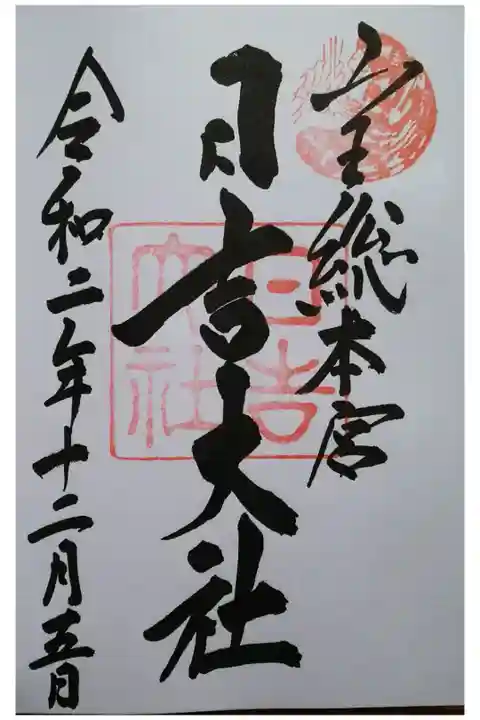 山王総本宮
日吉大社
日吉大社
令和二年十二月五日